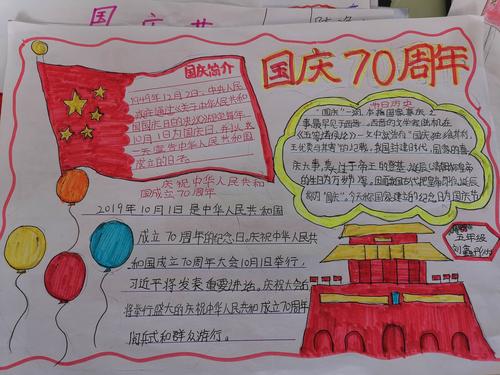 国庆
国庆70周年
国庆简介
1949年12月2日,中央人民
政府通过《关于中华人民共和
国国庆日的决议》规定每年
10月1日为国庆日,并以这
一天宣告中华人民共和国
成立的日子。
节日历史
"国庆"一词,本指国家喜庆之
事最早见于西晋。西晋的文学家陆机在
《五等诸侯论》一文中就曾有"国庆独飨其利,
主忧莫与其害"的记载,我国封建时代,国家的喜
庆大事,莫大过于帝王的登基、诞辰
的生日为万岁
称为"国庆"。今天称国家建立的纪念日为国庆节
庆祝中华人民共和
国成立70周年
2019年10月1日是中华人民共和国
成立70周年的纪念日。庆祝中华人民共
和国成立70周年大会10月1日举行,
习近平将发表重要讲话。庆祝大会后
将举行盛大的庆祝中华人民共和国成立70周年
阅兵式和群众游行。
五年级